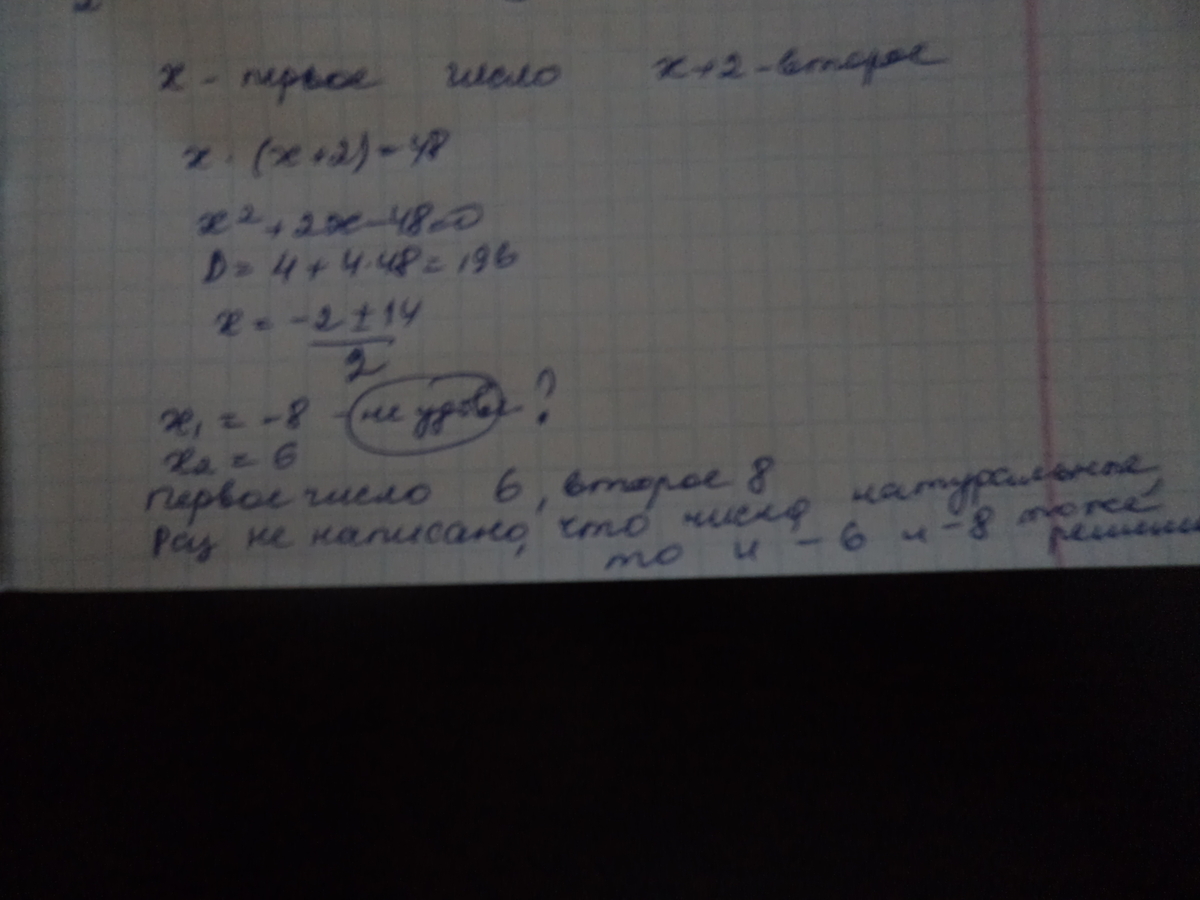 x - первое число x+2 - второе
x · (x+2) = 48
x² + 2x - 48 = 0
D = 4 + 4·48 = 196
x = (-2 ± 14)/2
x₁ = -8 - не удовл - ?
x₂ = 6
первое число 6, второе 8
Раз не написано, что числа натуральные,
то и -6 и -8 тоже решения